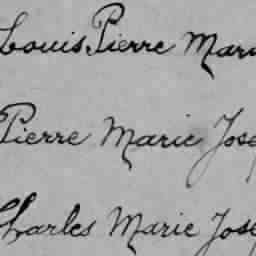 Louis Pierre Mari
Pierre Marie Jose
Charles Marie Jose